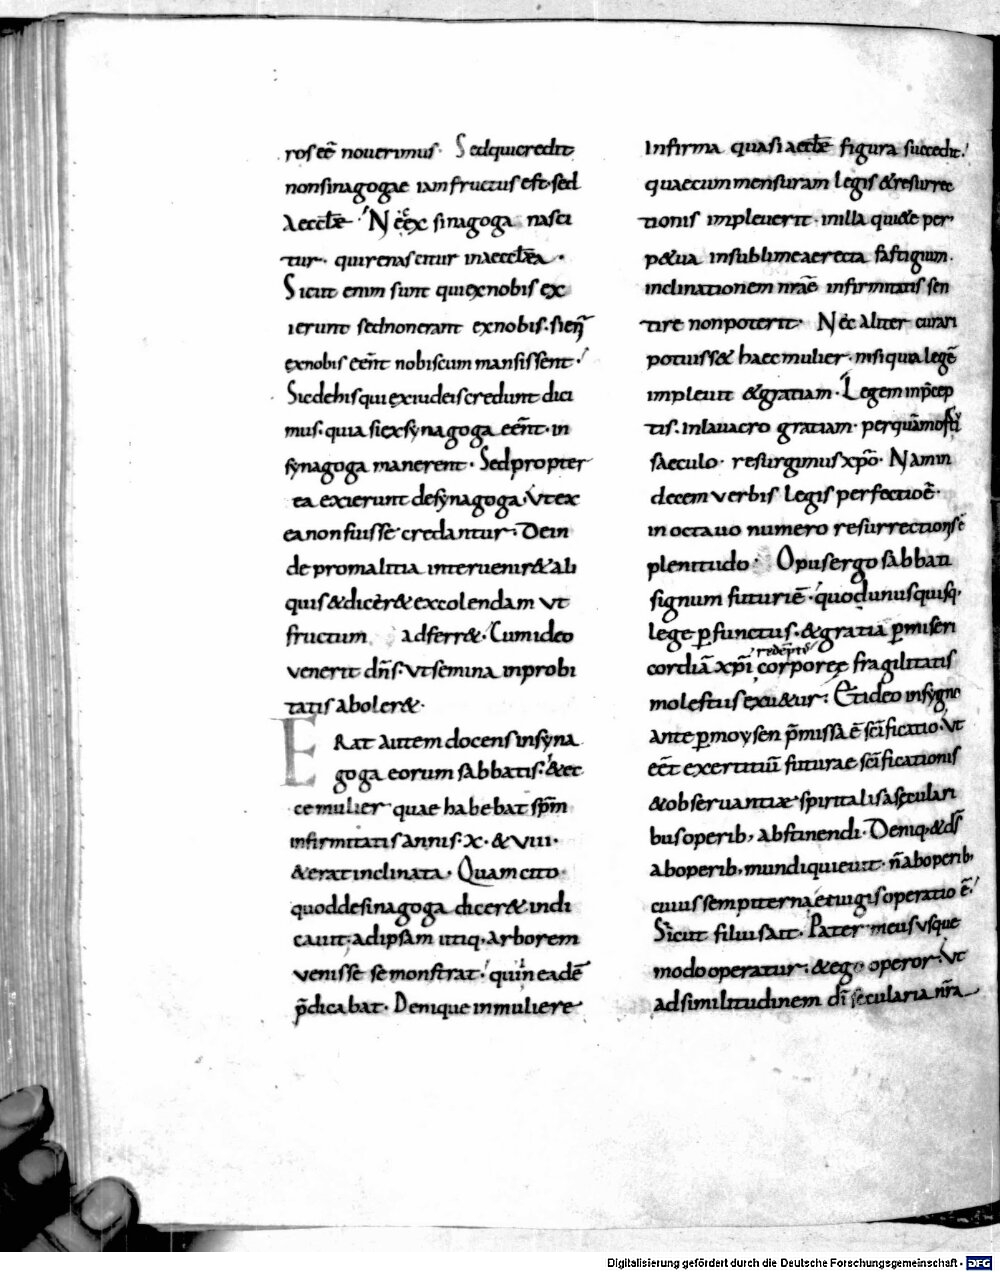 ros eē nouerimus. Sed qui credit
non sinagogae iam fructus est. sed
aecclae. Nec ex sinagoga nasci
tur. qui renascitur in aecclaea.
Sicut enim sunt qui ex nobis ex
ierunt sed non erant ex nobis. si en
ex nobis eēnt nobiscum mansissent.
Sic de his qui ex iudeis credunt dici
mus. quia si ex synagoga eēnt. in
synagoga manerent. Sed propter
ea exierunt de synagoga. Vt ex
ea non fuisse credantur. Dein
de pro malitia interuenir& ali
quis & dicer& excolendam vt
fructum adferr&. Cum ideo
venerit dn̄s. vt semina inprobi
tatis aboler&.
ERat autem docens in syna
goga eorum sabbatis. & ec
ce mulier quae habebat spm̄
infirmitatis annis. x. & viii.
& erat inclinata. Quam cito.
quod de sinagoga dicer& indi
cauit. ad ipsam utiq. arborem
venisse se monstrat. qui in eadē
p̄dicabat. Denique in muliere
infirma quasi aecclae figura succedit.
quae cum mensuram legis & resurrec
tionis impleuerit. in illa qui&e per
p&ua in sublime aerecta fastigium.
inclinationem nrāe infirmitatis sen
tire non poterit. Nec aliter curari
potuiss& haec mulier. nisi quia legē
impleuit & gratiam. Legem in p̄cep
tis. in lauacro gratiam. per quā mortui
saeculo. resurgimus xp̄o. Nam in
decem verbis legis perfectio ē.
in octauo numero resurrectionis ē
plenitudo. Opus ergo sabbati
signum futuri ē. quod unusquisq.
lege perfunctus. & gratia per miseri
cordiā xp̄i corporeae fragilitatis
redēptꝰ
molestiis exu&ur. Et ideo in sygno
ante per moysen p̄missa ē scīficatio. Vt
eēt exertitiū futurae scīficationis
& obseruantiae spiritalis a seculari
bus operib. abstinendi. Deniq. & dš
ab operib. mundi quieuit. n̄ ab operib.
cuius sempiterna et iugis operatio ē.
Sicut filius ait. Pater meus vsque
modo operatur. & ego operor. Vt
ad similitudinem dī secularia nr̄a
Digitalisierung gefördert durch die Deutsche Forschungsgemeinschaft - DFG